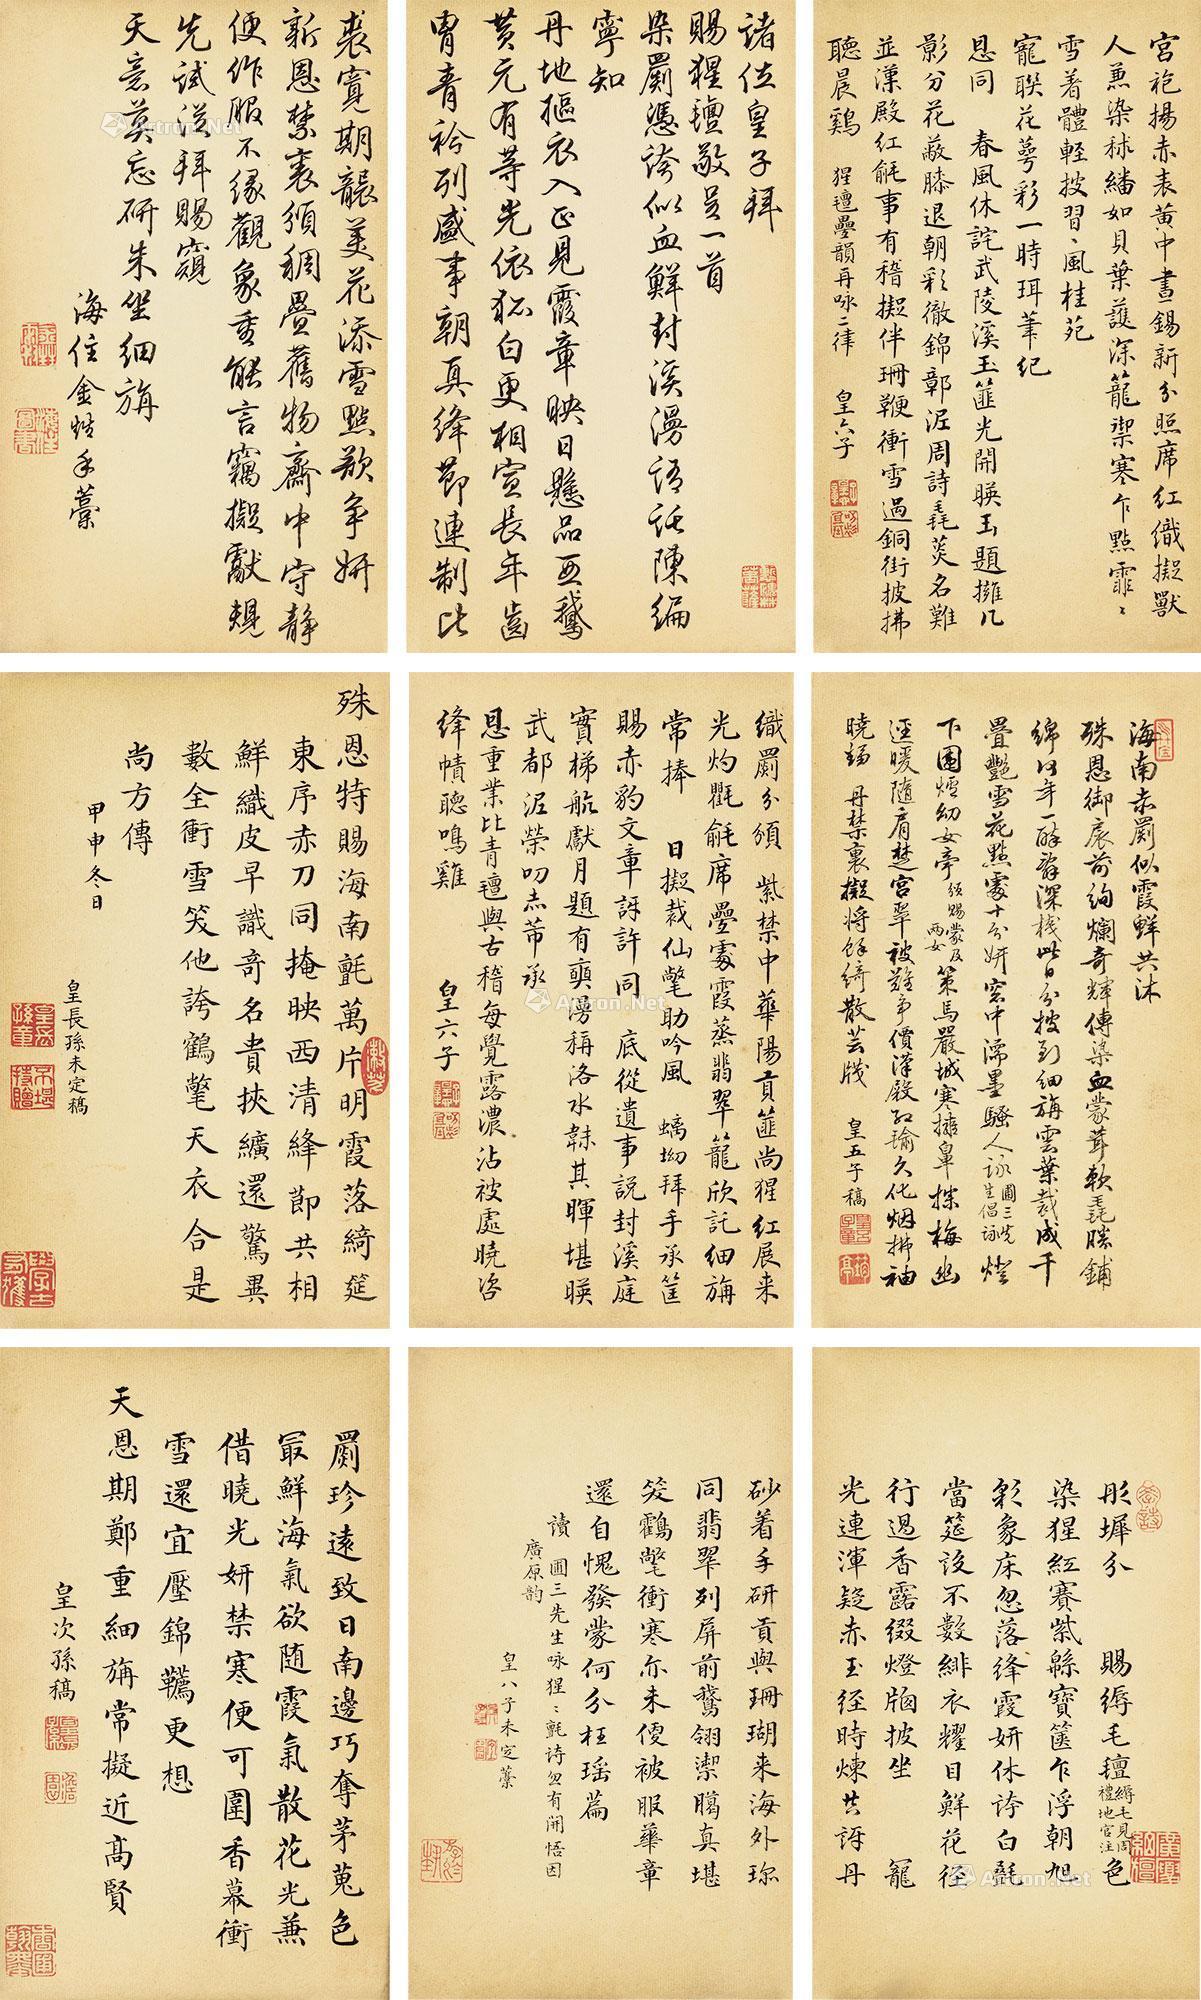 諸位皇子拜
賜猩氊敬呈一首
染罽憑誇似血鮮封溪漫語託陳編
寧知
丹地摳衣入正見霞章映日懸品亞鵞
黄元有等光依狐白更相宣長年齒
胄青衿列盛事朝真絳節連制比
裘寬期襲美花添雪點欲爭妍
新恩禁裏頒稠疊舊物齋中守静
便作服不緣觀象重能言竊擬獻規
先試從拜賜窺
天意莫忘研朱坐細旃
海住金甡手藁
宮袍揚赤表黄中晝錫新分照席紅織擬獸
人兼染秫繙如貝葉護深籠禦寒乍點霏〻
雪着體輕披習〻風桂苑
寵聯花萼彩一時珥筆紀
恩同　春風休詫武陵溪玉篚光開暎玉題擁几
影分花蔽膝退朝彩徹錦鄣泥周詩毳菼名難
並漢殿紅毹事有稽擬伴珊鞭衝雪過銅街披拂
聽晨鷄　猩氊疊韻再咏二律　皇六子
織罽分頒　紫禁中華陽貢篚尚猩紅展來
光灼氍毹席疊處霞蒸翡翠籠欣託細旃
常捧　日擬裁仙氅助吟風　螭坳拜手承筐
賜赤豹文章訝許同　底從遺事説封溪庭
實梯航獻月題有奭湯稱洛水韎其暉堪暎
武都泥榮叨赤芾承
恩重業比青氊與古稽每覺露濃沾被處曉咨
絳幘聽鳴雞　皇六子
海南赤罽似霞鮮共沐
殊恩御扆前絢爛奇輝傳染血蒙茸軟毳勝鋪
綿何年一醉窮深棧此日分披到細旃雲葉裁成千
疊艷雪花點處十分妍窓中濡墨騷人詠圃三先生倡詠燈
下圍爐幼女牽紱賜蒙及兩女策馬嚴城寒擁鼻探梅幽
逕暖隨肩楚宮翠被難爭價漢殿紅瑜久化烟拂袖
曉歸　丹禁裏擬將餘綺散芸牋　皇五子稿
殊恩特賜海南氈萬片明霞落綺筵
東序赤刀同掩映西清絳節共相
鮮織皮早識奇名貴挾纊還驚異
數全衝雪笑他誇鶴氅天衣合是
尚方傳
甲申冬日
皇長孫未定稿
彤墀分　賜縟毛氊縟毛見周禮地官注色
染猩紅賽紫緜寶篋乍浮朝旭
彩象床忽落絳霞妍休誇白氎
當筵設不數緋衣耀日鮮花徑
行過香露綴燈牕披坐　寵
光連渾疑赤玉經時煉共訝丹
砂着手研貢與珊瑚來海外珎
同翡翠列屏前鵞翎潔膩真堪
笑鸖氅衝寒亦未便被服華章
還自愧發蒙何分枉瑶篇
讀　圃三先生咏猩〻氈詩忽有開悟因
廣原韵
皇八子未定藁
罽珍遠致日南邊巧奪茅蒐色
最鮮海氣欲随霞氣散花光兼
借曉光妍禁寒便可圍香幕衝
雪還宜壓錦韉更想
天恩期鄭重細旃常擬近高賢
皇次孫稿